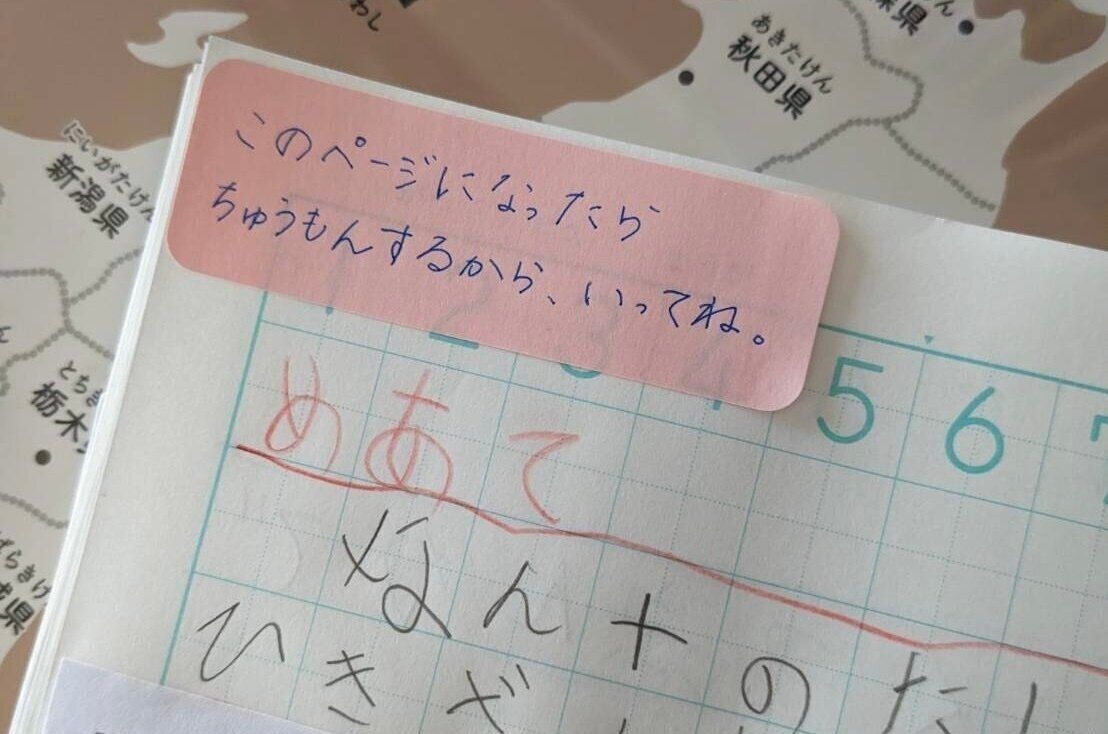 わし
あきたけん
秋田県
県
にいがたけん
新潟県
とち
栃木
県
このページになったら
ちゅうもんするから、いってね。
2
5
6
めあて
なん十の
ひきざ